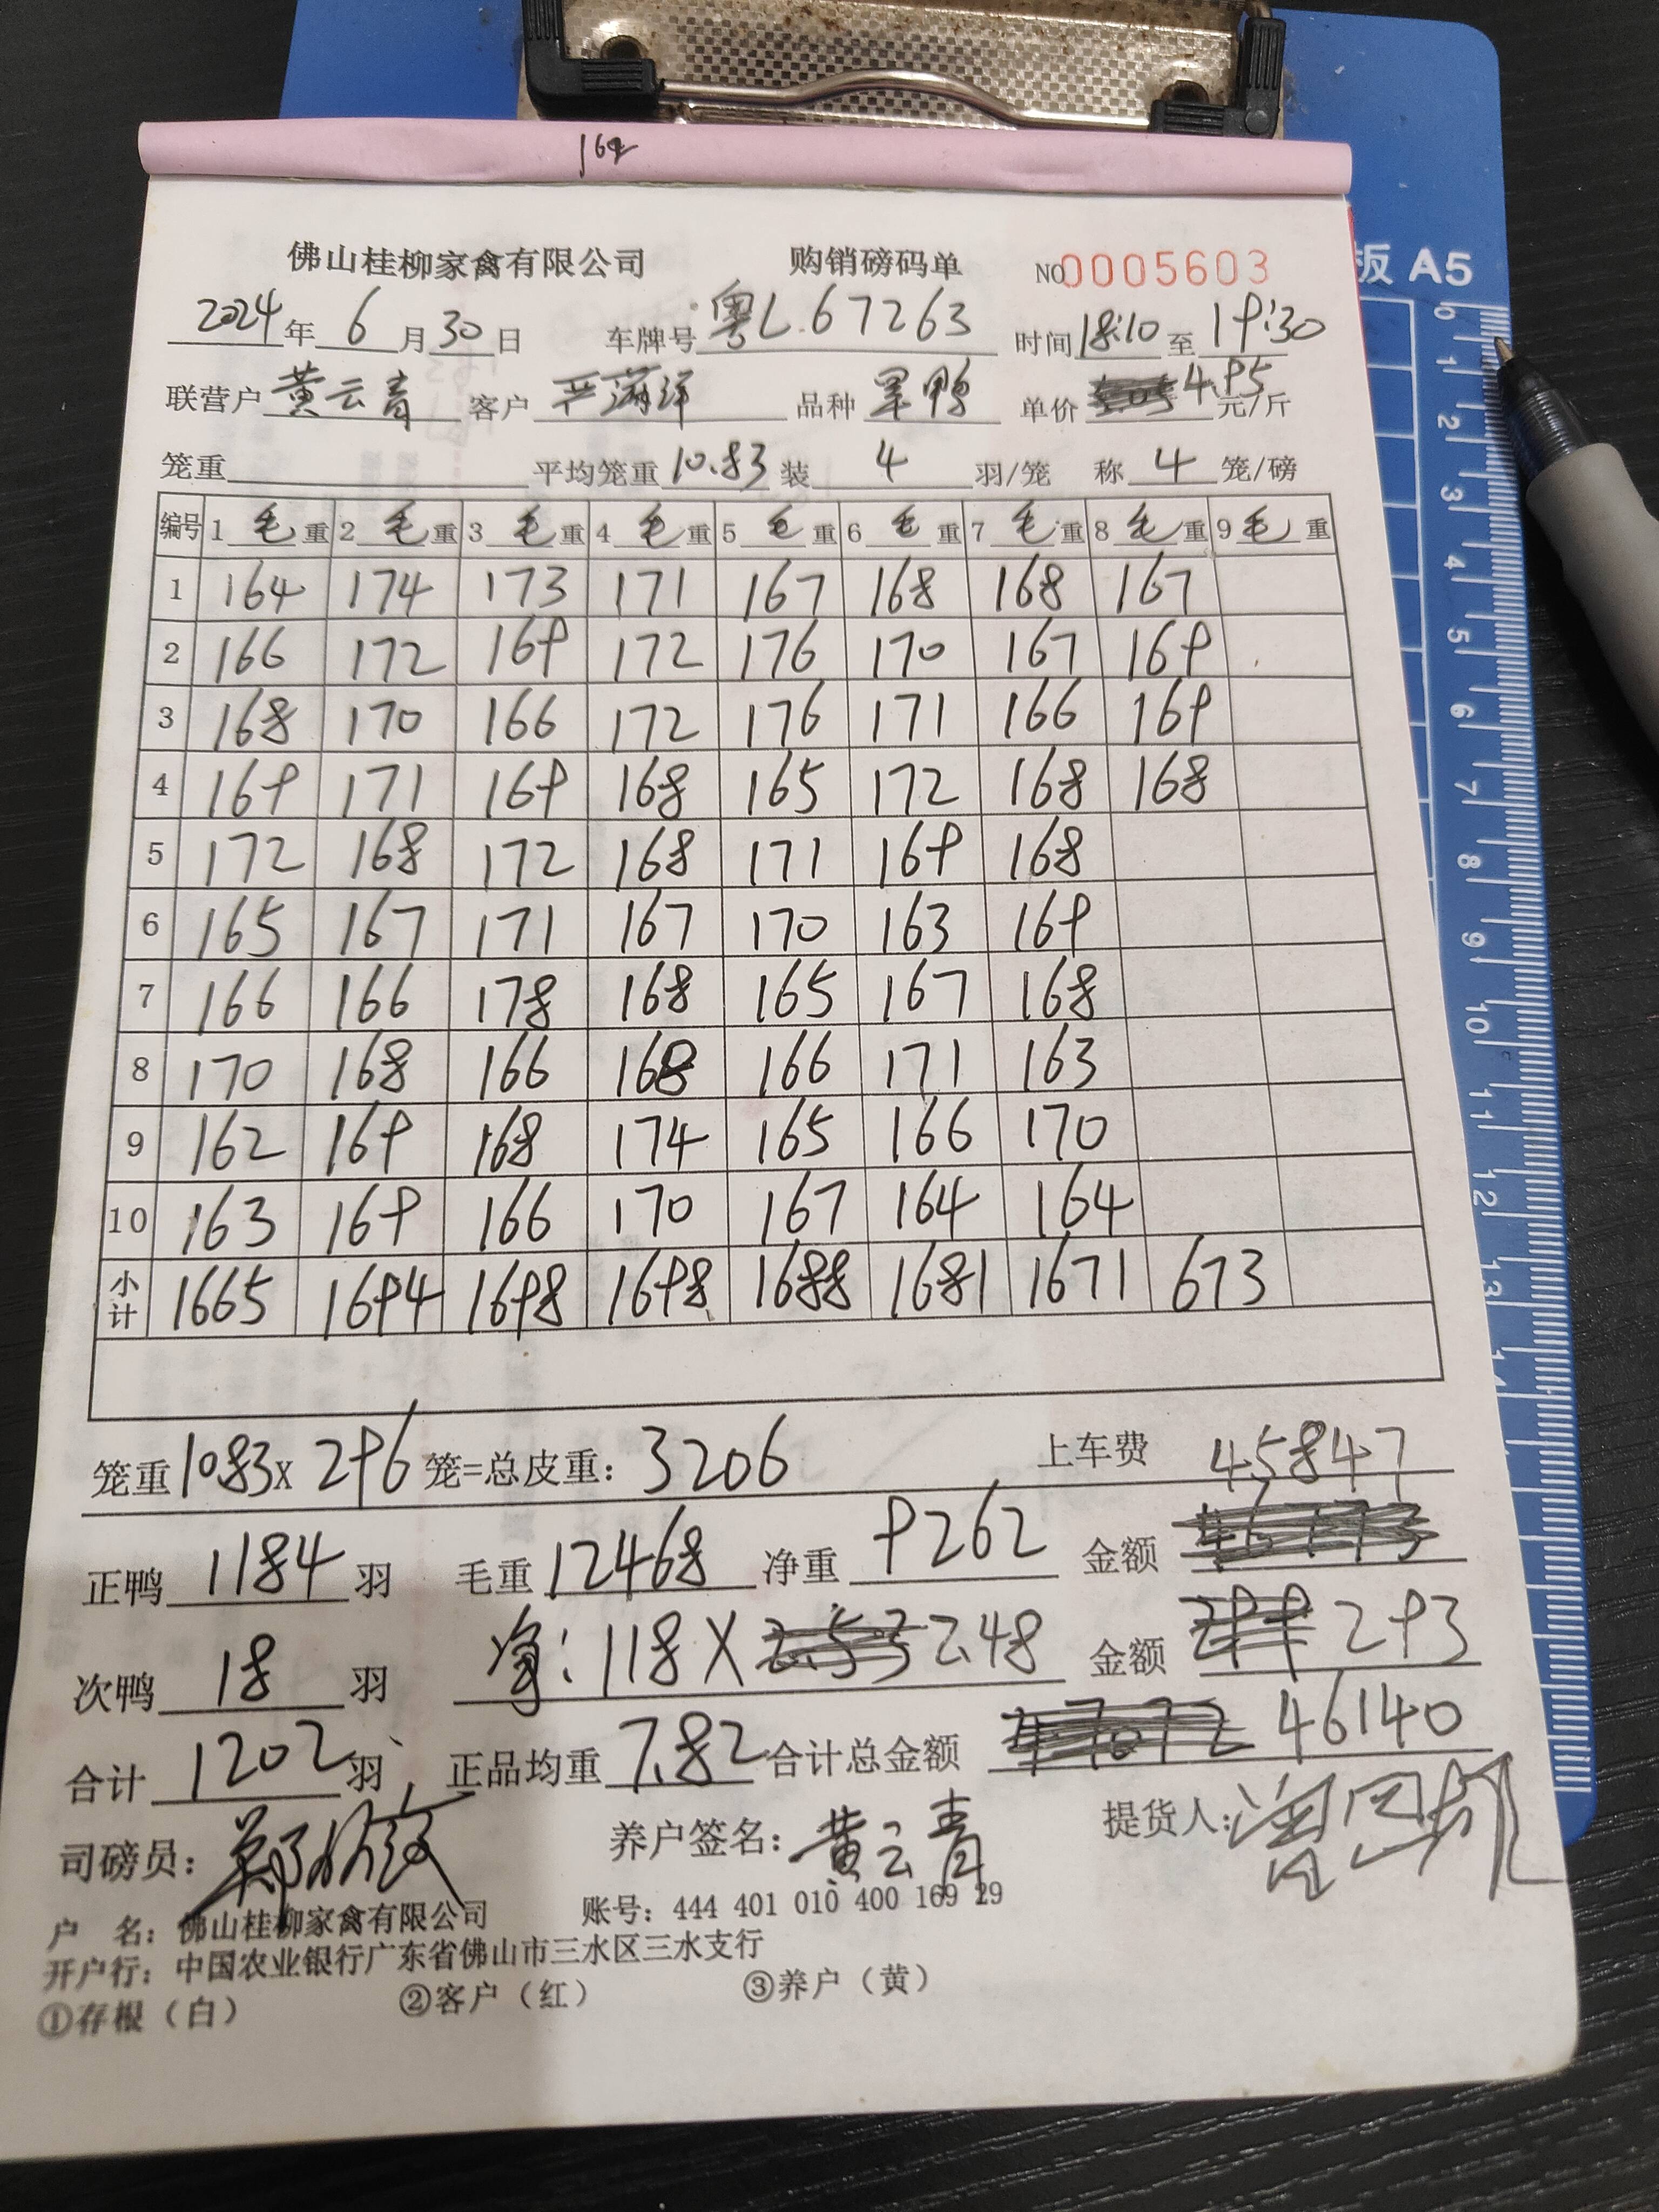 164
佛山桂柳家禽有限公司 购销磅码单 NO 0005603
2024年 6月30日 车牌号 粤L.67263 时间 18:10 至 19:30
联营户 黄云青 客户 品种 单价 4.95 元/斤
笼重 平均笼重 10.83 装 4 羽/笼 称 4 笼/磅
编号 1 毛 重 2 毛 重 3 毛 重 4 毛 重 5 毛 重 6 毛 重 7 毛 重 8 毛 重 9 毛 重
1 164 174 173 171 167 168 168 167
2 166 172 169 172 176 170 167 169
3 168 170 166 172 176 171 166 169
4 169 171 169 168 165 172 168 168
5 172 168 172 168 171 169 168
6 165 167 171 167 170 163 169
7 166 166 178 168 165 167 168
8 170 168 166 168 166 171 163
9 162 169 168 174 165 166 170
10 163 169 166 170 167 164 164
小计 1665 1694 1698 1698 1688 1681 1671 673
笼重 10.83 X 296 笼=总皮重: 3206 上车费 45847
正鸭 1184 羽 毛重 12468 净重 9262 金额
次鸭 18 羽 净: 118 X 2.48 金额 293
合计 1202 羽 正品均重 7.82 合计总金额 46140
司磅员: 养户签名: 黄云青 提货人:
户 名: 佛山桂柳家禽有限公司 账号: 444 401 010 400 169 29
开户行: 中国农业银行广东省佛山市三水区三水支行
①存根（白） ②客户（红） ③养户（黄）
板 A5
0 1 2 3 4 5 6 7 8 9 10 11 12 13